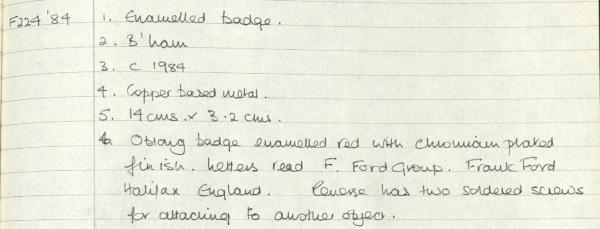 F224 '84 1. Enamelled badge.
2. B'ham
3. c 1984
4. Copper based metal.
5. 14 cms. x 3.2 cms.
6 Oblong badge enamelled red with chromium plated
finish. Letters read F. Ford Group. Frank Ford
Halifax England. Reverse has two soldered screws
for attaching to another object.